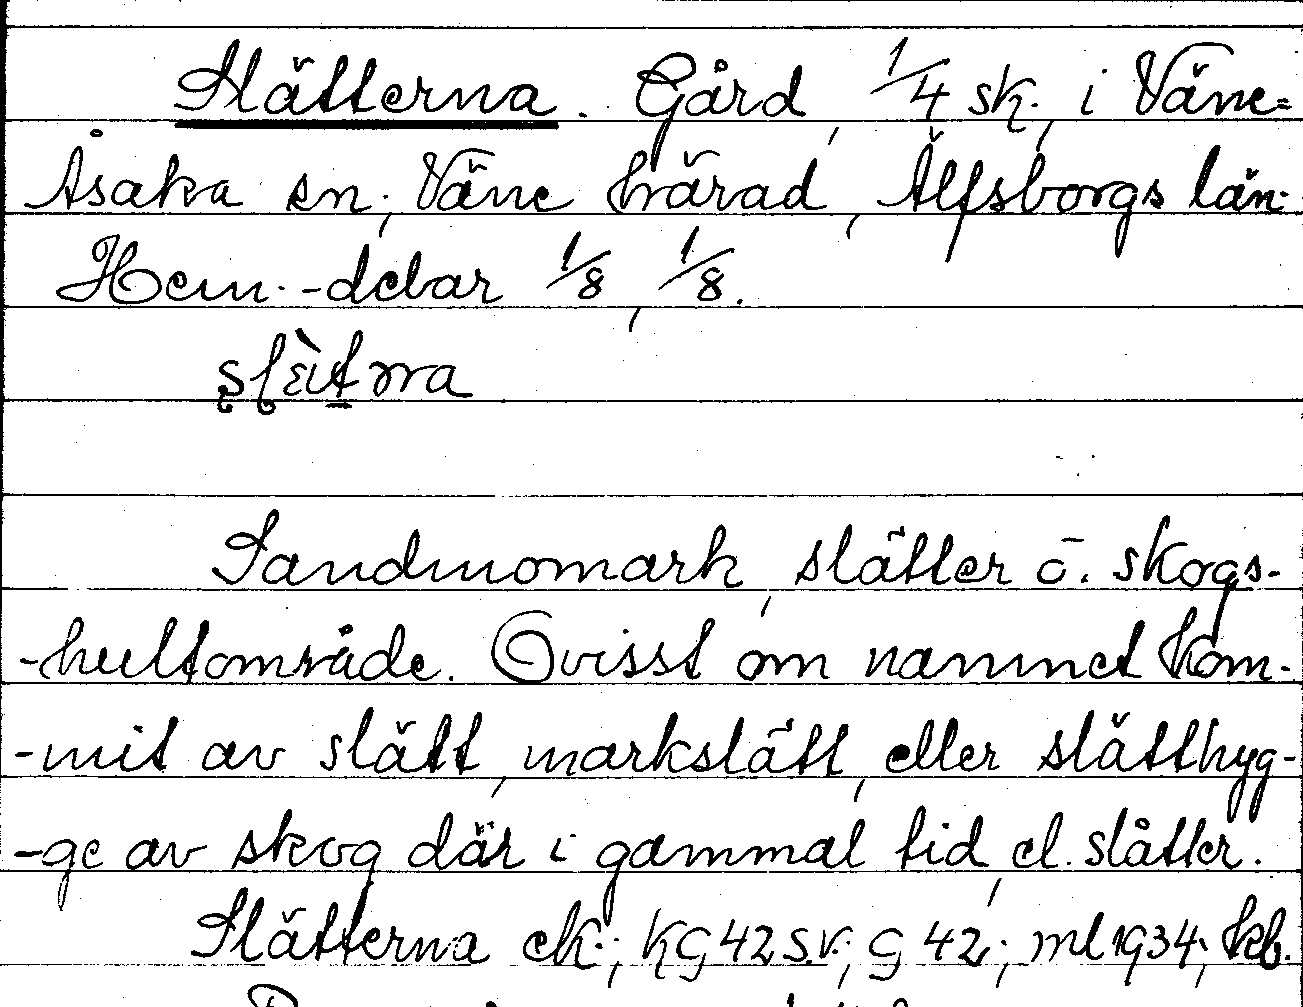 Slätterna. Gård, 1/4 sk., i Väne=
Åsaka sn., Väne härad, Älfsborgs län.
Hem.-delar 1/8, 1/8.
Sandmomark, slätter o. skogs-
-hultområde. Ovisst om namnet kom-
-mit av slätt, markslätt, eller slätthyg-
-ge av skog där i gammal tid, el. slåtter.
Slätterna ek.; KG 42 S.V.; G 42; ml 1934; kb.